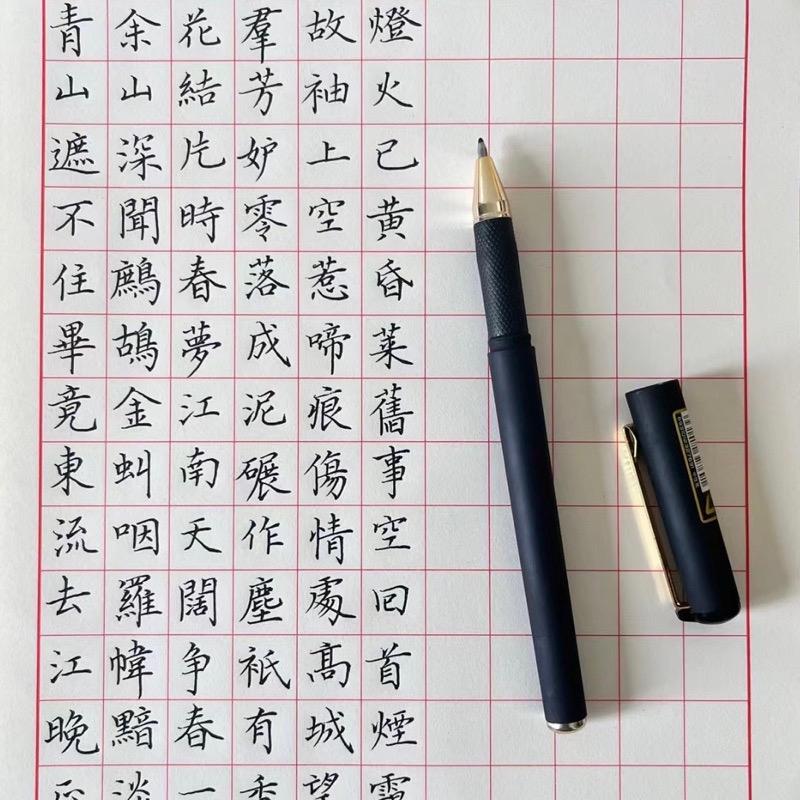 青山遮不住畢竟東流去江晚正
余山深聞鷓鴣金虯咽羅幃黯淡
花結片時春夢江南天闊争春一
羣芳妒零落成泥碾作塵祇有香
故袖上空惹啼痕傷情處高城望
燈火已黃昏萊舊事空回首煙